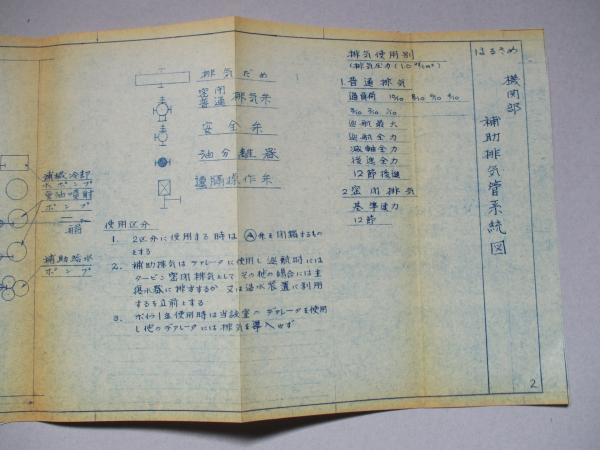 はるさめ
機関部
補助排気管系統図
排気使用別
(排気圧力(1.0㎏/cm²)
1.普通排気
過負荷 10/10 8/10 6/10 4/10
3/10 2/10 1/10
巡航最大
巡航全力
減軸全力
後進全力
12節後進
2.密閉排気
基準速力
12節
排気だめ
密閉
普通排気弁
安全弁
油分離器
遠隔操作弁
減械冷却
水ポンプ
重油噴射
ポンプ
補助給水
ポンプ
使用区分
1. 2区分に使用する時はA弁を閉鎖するもの
とする
2. 補助排気はデアレータに使用し巡航時には
タービン密閉排気としてその他の場合には主
復水器に排すするか又は造水装置に利用
するを立前とする
3. ボイラ1基使用時は当該室のデアレータを使用
し他のデアレータには排気を導入せず
2